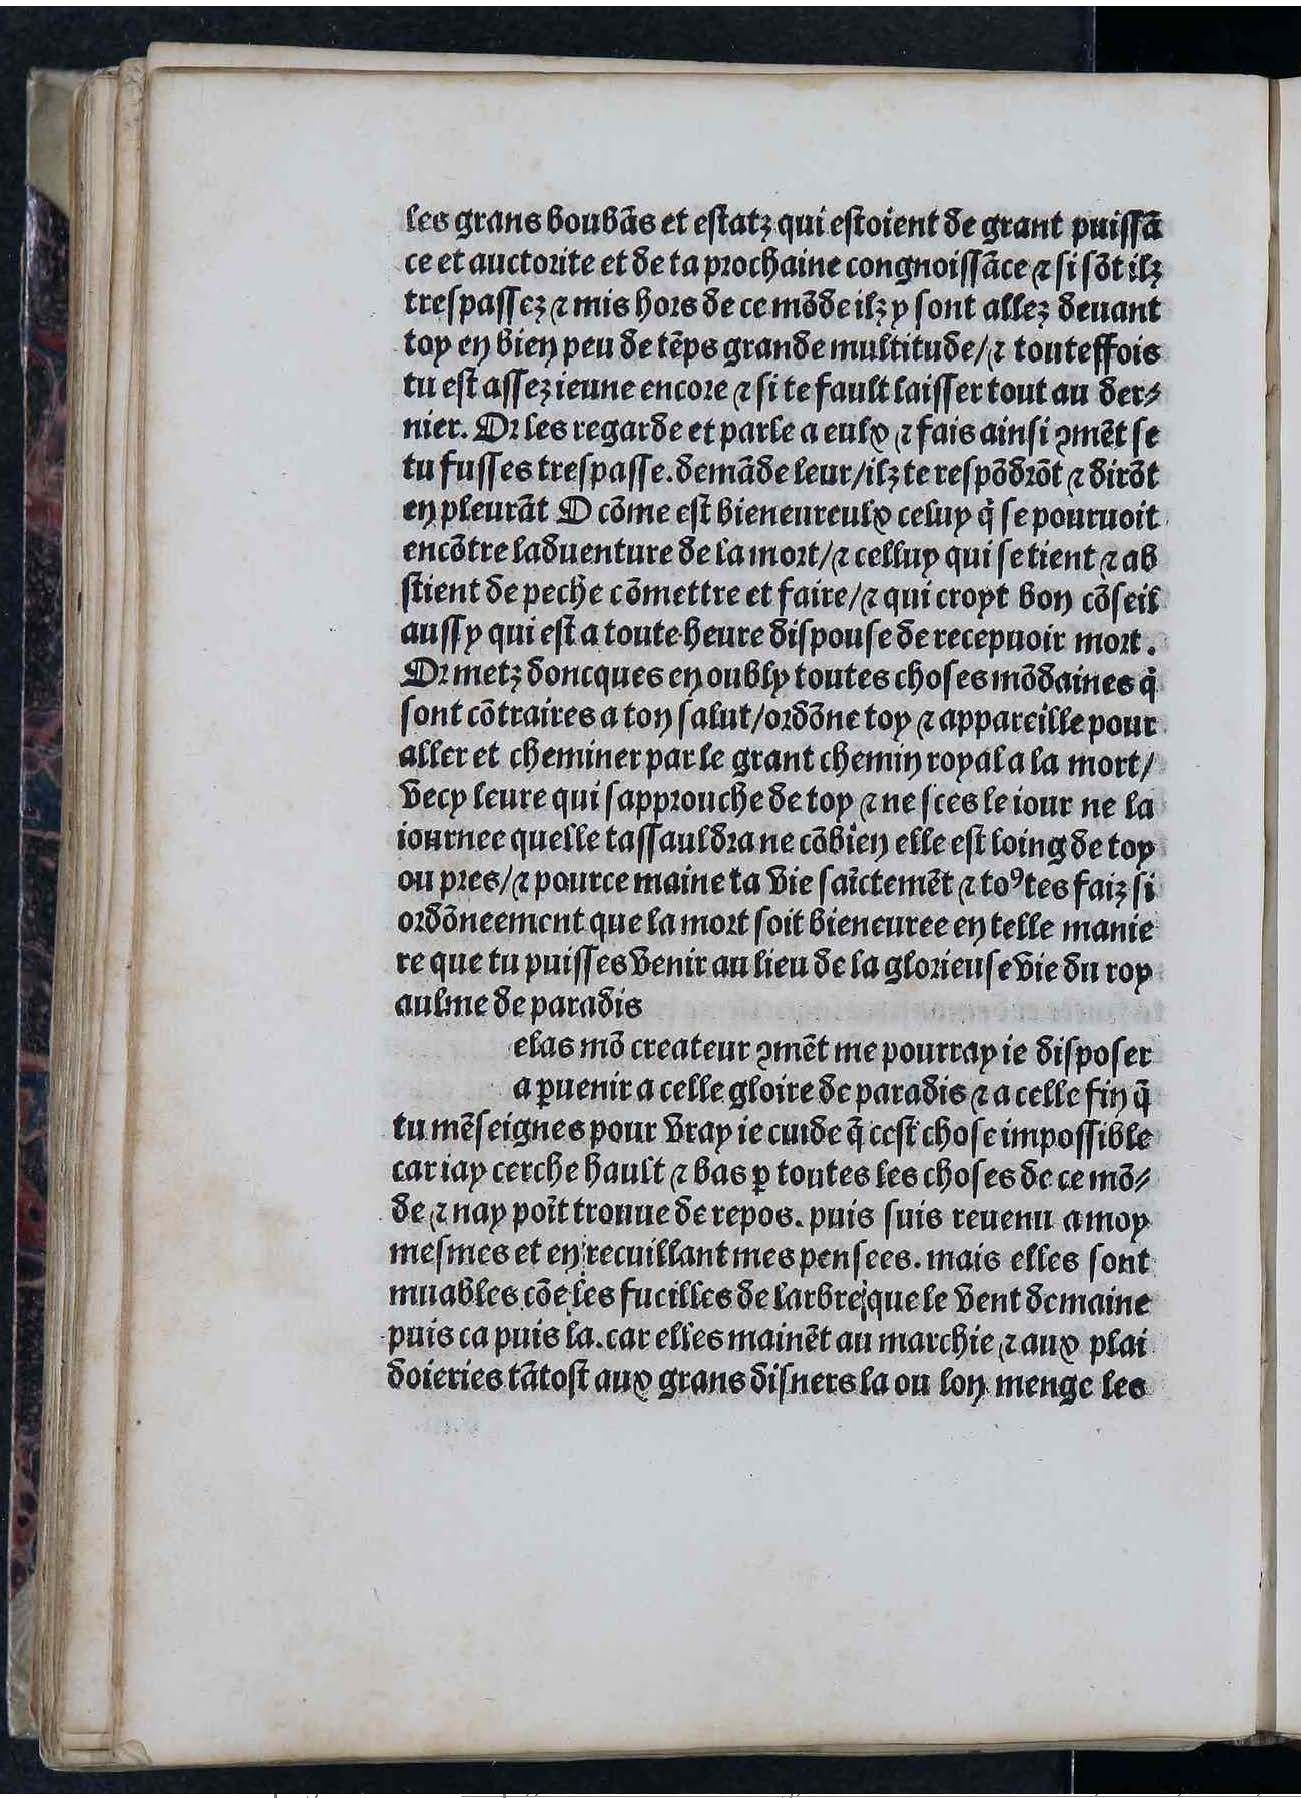 les grans boubãs et eſtatz qui eſtoient de grant puiſſã
ce et auctorite et de ta prochaine congnoiſſãce ⁊ ſi ſõt ilz
treſpaſſez ⁊ mis hors de ce mõde ilz y ſont allez deuant
toy en bien peu de tẽps grande multitude/⁊ touteffois
tu eſt aſſez ieune encore ⁊ ſi te fault laiſſer tout au der⸗
nier. Or les regarde et parle a eulx ⁊ fais ainſi ꝯmẽt ſe
tu fuſſes treſpaſſe. demãde leur/ilz te reſpõdrõt ⁊ dirõt
en pleurãt O cõme eſt bieneureulx celuy q̃ ſe pouruoit
encõtre laduenture de la mort/⁊ celluy qui ſe tient ⁊ ab
ſtient de peche cõmettre et faire/⁊ qui croyt bon cõſeil
auſſy qui eſt a toute heure diſpouſe de recepuoir mort.
Or metz doncques en oubly toutes choſes mõdaines q̃
ſont cõtraires a ton ſalut/ordõne toy ⁊ appareille pour
aller et cheminer par le grant chemin royal a la mort/
vecy leure qui ſapprouche de toy ⁊ ne ſces le iour ne la
iournee quelle taſſauldra ne cõbien elle eſt loing de toy
ou pres/⁊ pource maine ta vie ſaĩctemẽt ⁊ toꝰtes faiz ſi
ordõneement que la mort ſoit bieneuree en telle manie
re que tu puiſſes venir au lieu de la glorieuſe vie du roy
aulme de paradis
elas mõ createur ꝯmẽt me pourray ie diſpoſer
a ꝑuenir a celle gloire de paradis ⁊ a celle fin q̃
tu mẽſeignes pour vray ie cuide q̃ ceſt choſe impoſſible
car iay cerche hault ⁊ bas ꝑ toutes les choſes de ce mõ⸗
de ⁊ nay poĩt trouue de repos. puis ſuis reuenu a moy
meſmes et en recuillant mes penſees. mais elles ſont
muables cõe les fueilles de larbre que le vent demaine
puis ca puis la. car elles mainẽt au marchie ⁊ aux plai
doieries tãtoſt aux grans diſners la ou lon menge les